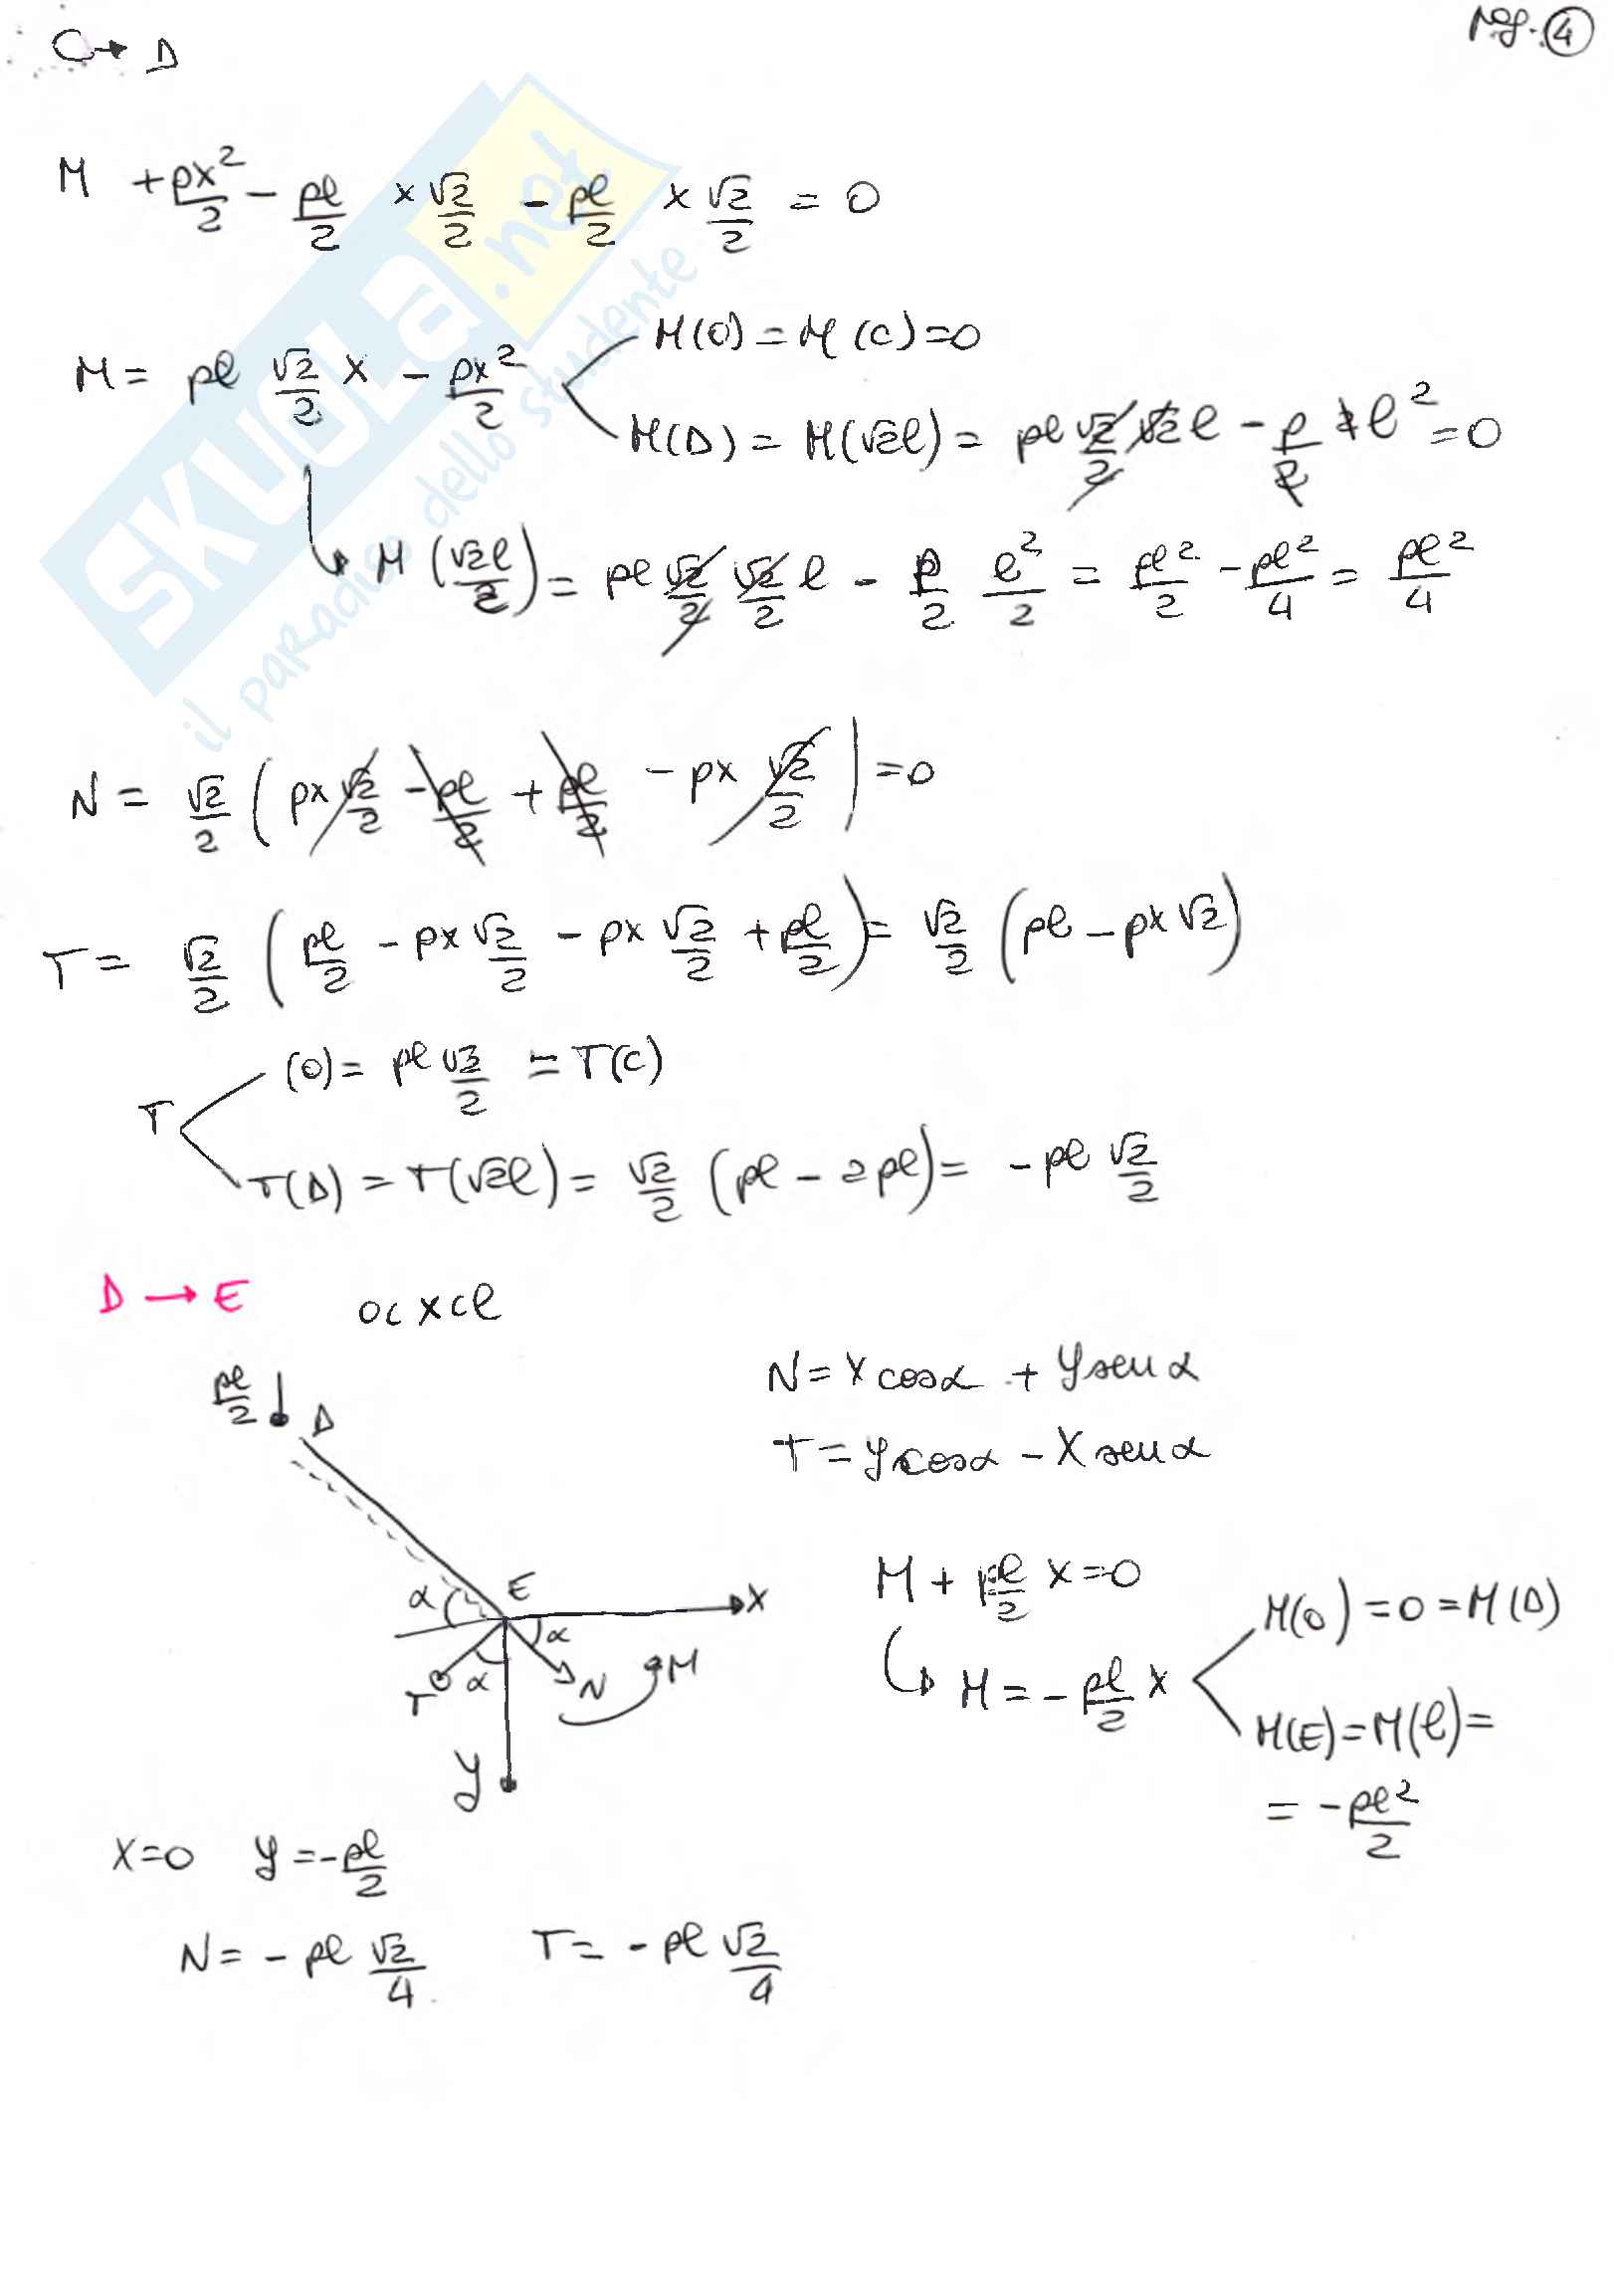 pag. 4
C → D
M + px²/2 - pl/2 x √2/2 - pl/2 x √2/2 = 0
M = pl √2/2 x - px²/2
M(0) = M(C) = 0
M(D) = M(√2l) = pl √2/2 √2 l - p/2 2l² = 0
M(√2l/2) = pl √2/2 √2/2 l - p/2 l²/2 = pl²/2 - pl²/4 = pl²/4
N = √2/2 (px √2/2 - pl/2 + pl/2 - px √2/2) = 0
T = √2/2 (pl/2 - px √2/2 - px √2/2 + pl/2) = √2/2 (pl - px √2)
T
(0) = pl √2/2 = T(C)
T(D) = T(√2l) = √2/2 (pl - 2pl) = - pl √2/2
D → E 0<x<l
N = X cosα + Y senα
T = Y cosα - X senα
pl/2 D
M + pl/2 x = 0
M = - pl/2 x
M(0) = 0 = M(D)
M(E) = M(l) =
= - pl²/2
α E X
α
T α N M
Y
X = 0 Y = - pl/2
N = - pl √2/4 T = - pl √2/4
SKUOLA.net
il paradiso dello studente